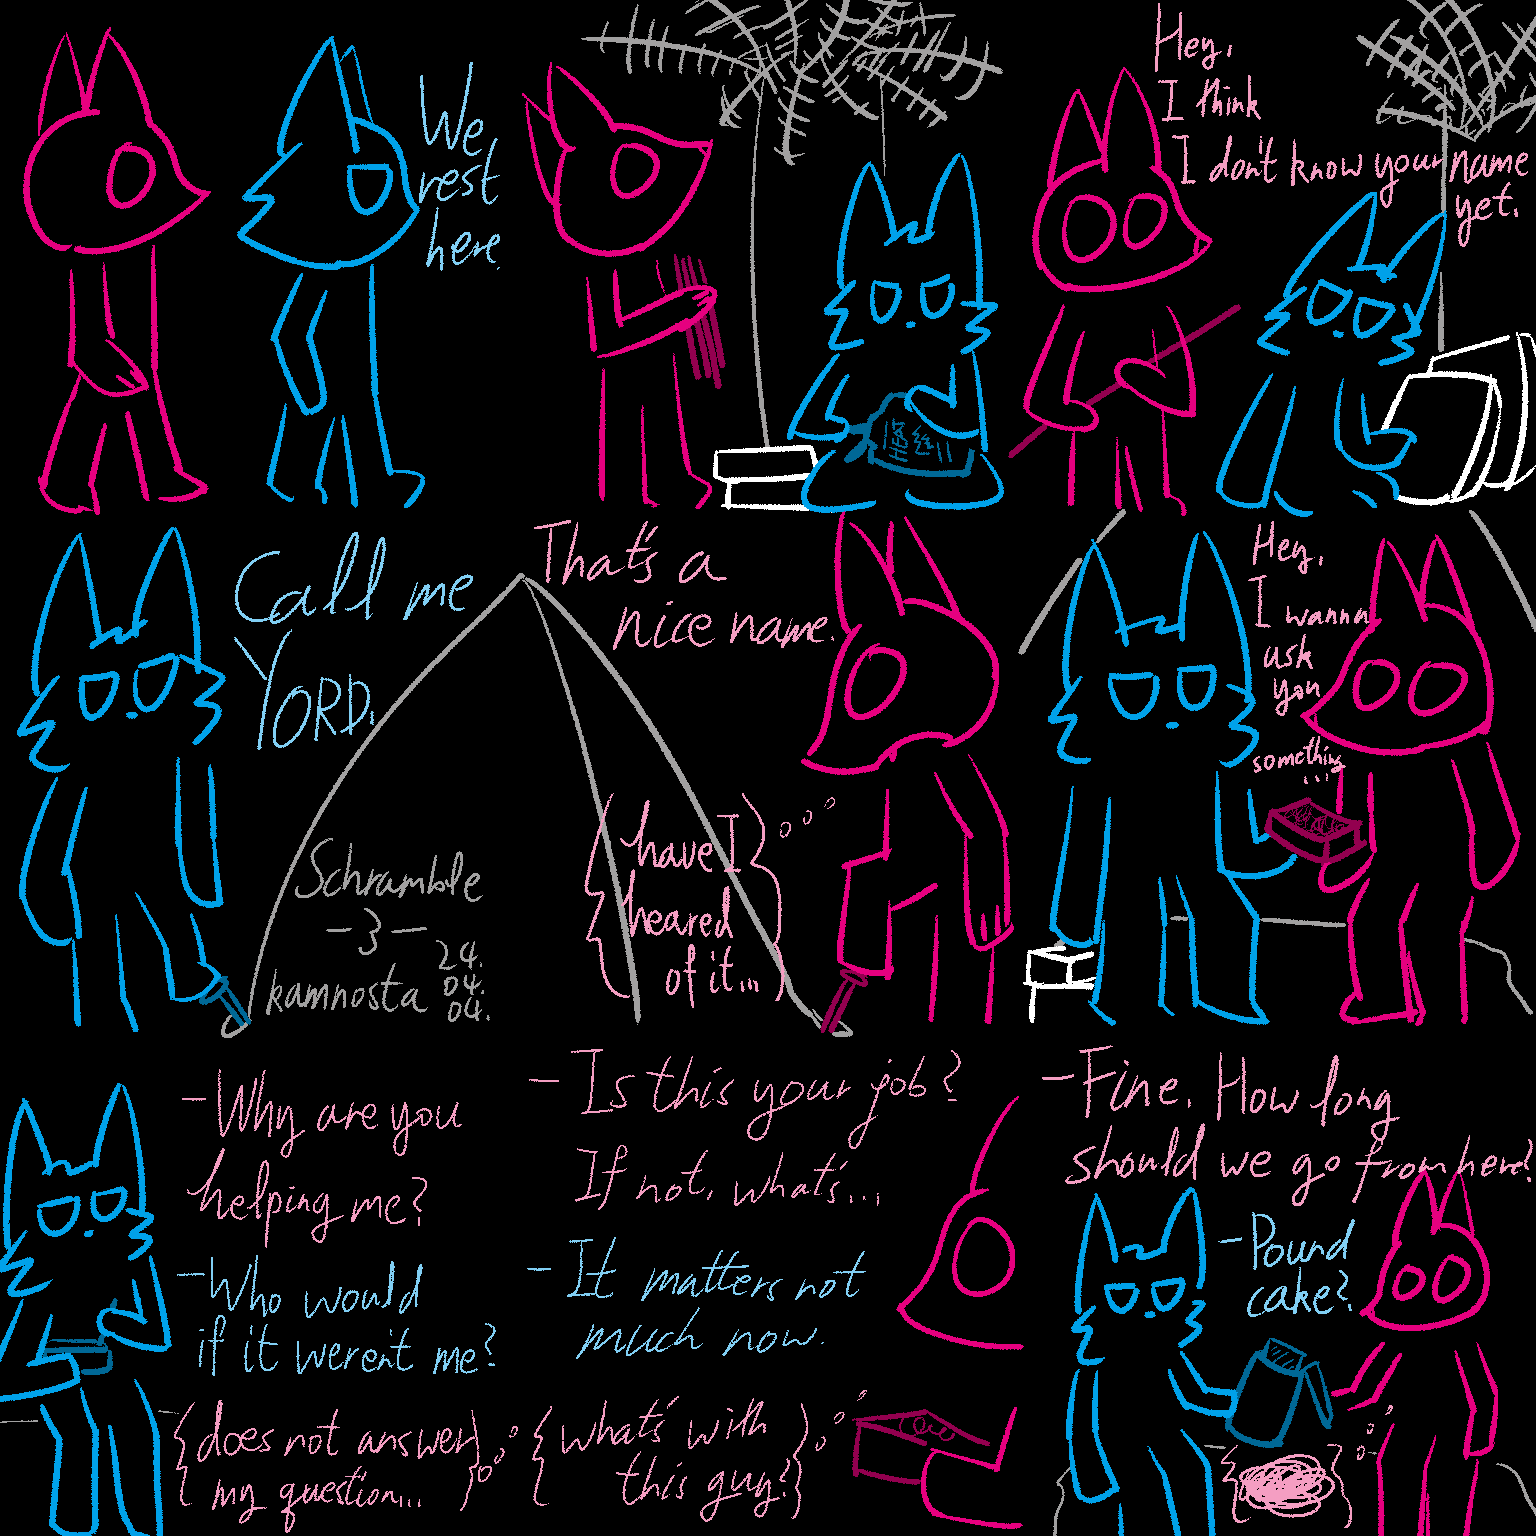 We
rest
here.
Hey,
I think
I don't know your name
yet.
Call me
YORD.
That's a
nice name.
Schramble
-3-
kamnosta
24.
04.
04.
have I
heared
of it...
Hey,
I wanna
ask
you
something
...
-Why are you
helping me?
-Who would
if it weren't me?
does not answer
my question...
-Is this your job?
If not, what's...
-It matters not
much now.
what's with
this guy?
-Fine. How long
should we go from here?
-Pound
cake?